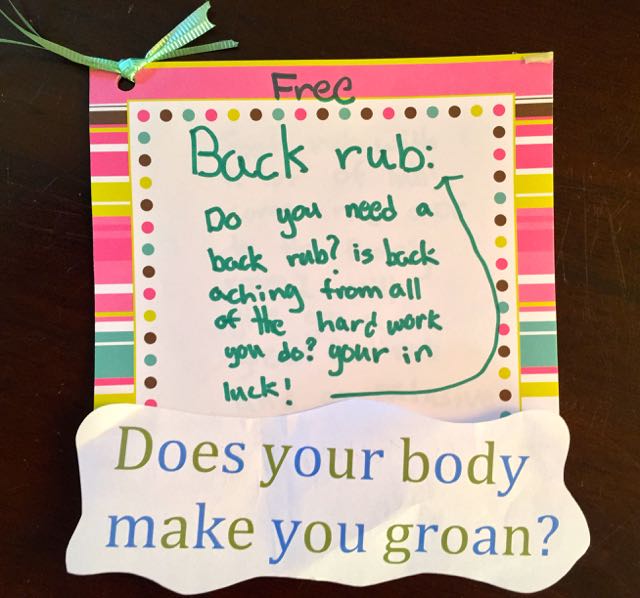 Free
Back rub:
Do you need a
back rub? is back
aching from all
of the hard work
you do? your in
luck!
Does your body
make you groan?